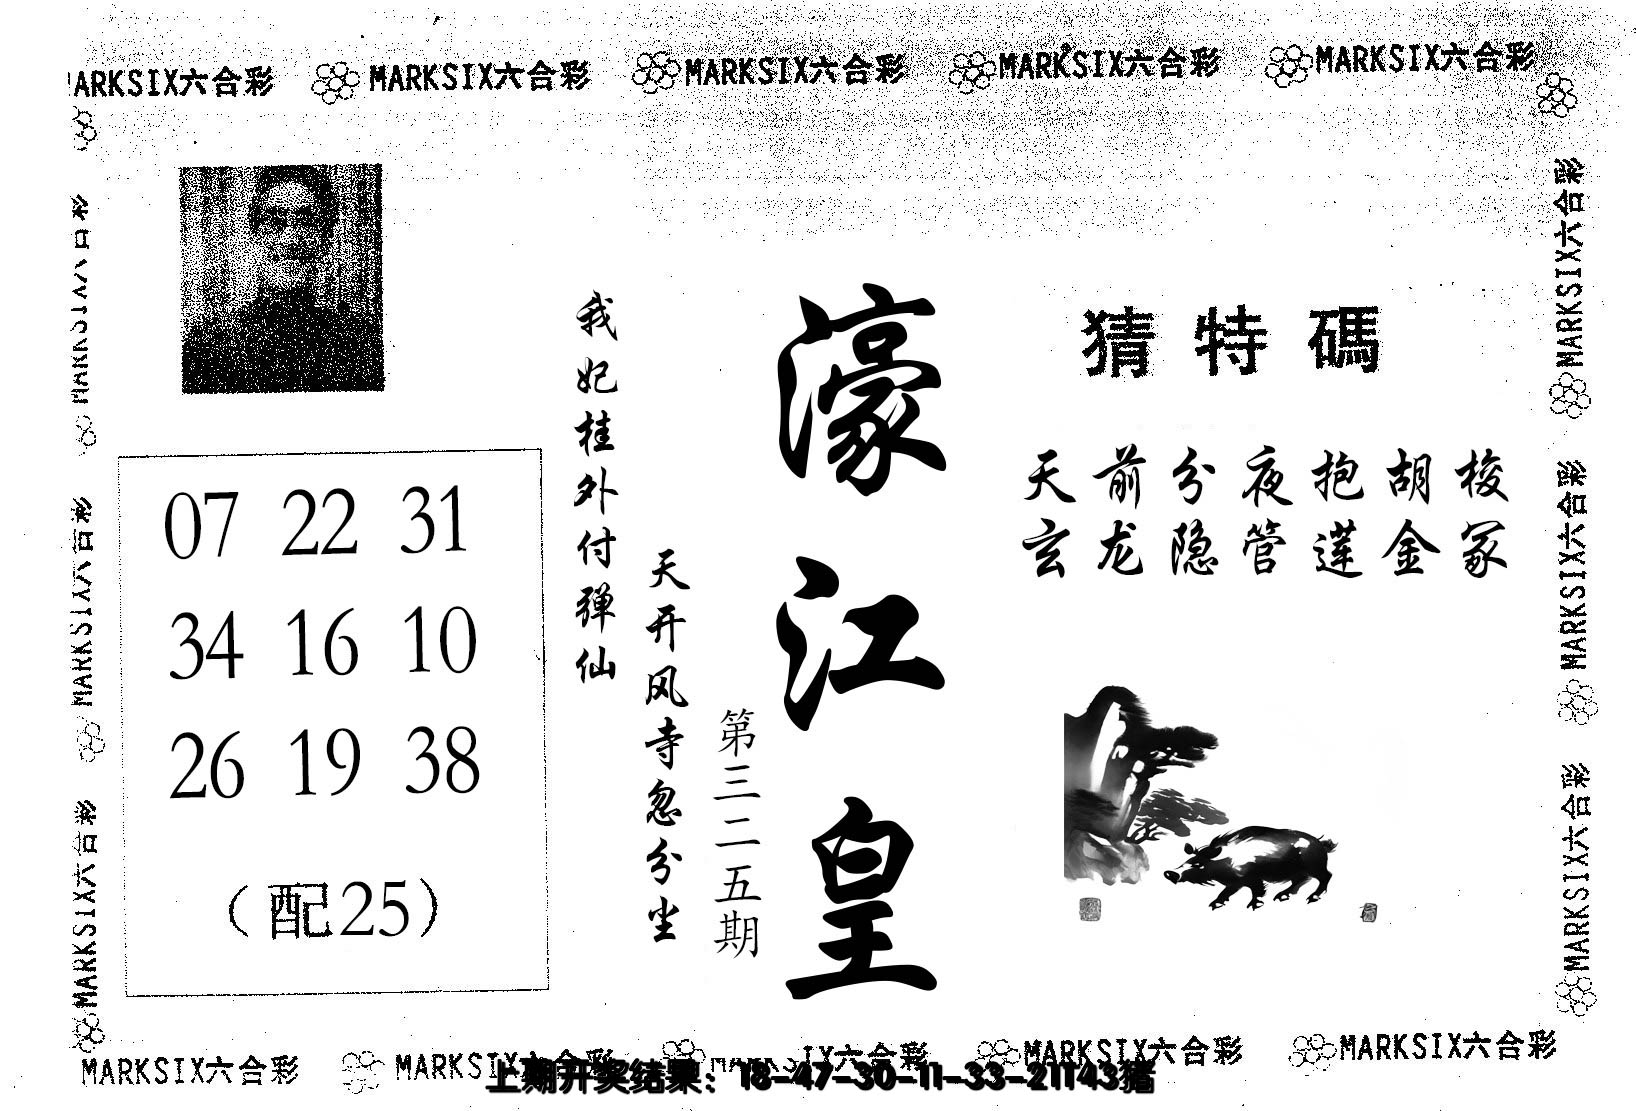 MARKSIX六合彩 MARKSIX六合彩 MARKSIX六合彩 MARKSIX六合彩 MARKSIX六合彩
猜特碼
天前分夜抱胡梭
玄龙隐管莲金冢
濠江皇
第三二五期
天开风寺忽分坐
我妃桂外付弹仙
07 22 31
34 16 10
26 19 38
（配25）
MARKSIX六合彩
MARKSIX六合彩
MARKSIX六合彩
MARKSIX六合彩
MARKSIX六合彩
MARKSIX六合彩
MARKSIX六合彩 MARKSIX六合彩 MARKSIX六合彩 MARKSIX六合彩 MARKSIX六合彩
上期开奖结果：18-47-30-11-33-21T43猪